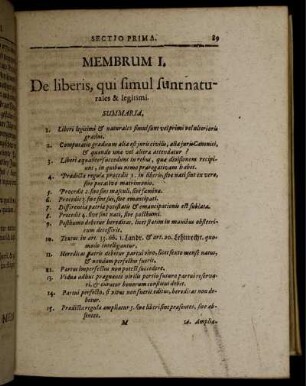 SECTIO PRIMA. 89
MEMBRUM I.
De liberis, qui simul sunt natu-
rales & legitimi.
SUMMARIA.
1. Liberi legitimi & naturales simul sunt vel primi vel ulterioris
gradus.
2. Computatio graduum alia est juris civilis, alia juris Canonici,
& quando una vel altera attendatur?
3. Liberi aquantur succedunt in rebus, quæ divisionem recipi-
unt, in quibus nemo prærogativam habet.
4. Prædicta regula procedit 1. in liberis, sive nati sint in vero,
sive putativo matrimonio.
5. Procedit 2. sive sint masculi, sive fœmina.
6. Procedit 3. sive sint sui, sive emancipati.
7. Differentia patria potestatis & emancipationis est sublata.
8. Procedit 4. sive sint nati, sive posthumi.
9. Posthumo debetur hereditas, licet statim in manibus obstetri-
cum decesserit.
10. Textus in art. 33. lib. 1. Landr. & art. 20. Lehnrecht, quo-
modo intelligantur.
11. Hereditas patris debetur partui vivo, licet septimo mense natus,
& nondum perfectus fuerit.
12. Partus imperfectus non potest succedere.
13. Vidua adhuc prægnante virilis portio futuro partui reserva-
ri, & curator bonorum constitui debet.
14. Partui perfecto, si vitus non fuerit editus, hereditas non de-
betur.
15. Prædicta regula ampliatur 5. sive liberi sint præsentes, sive ab-
sentes.
M 16. Amplia-